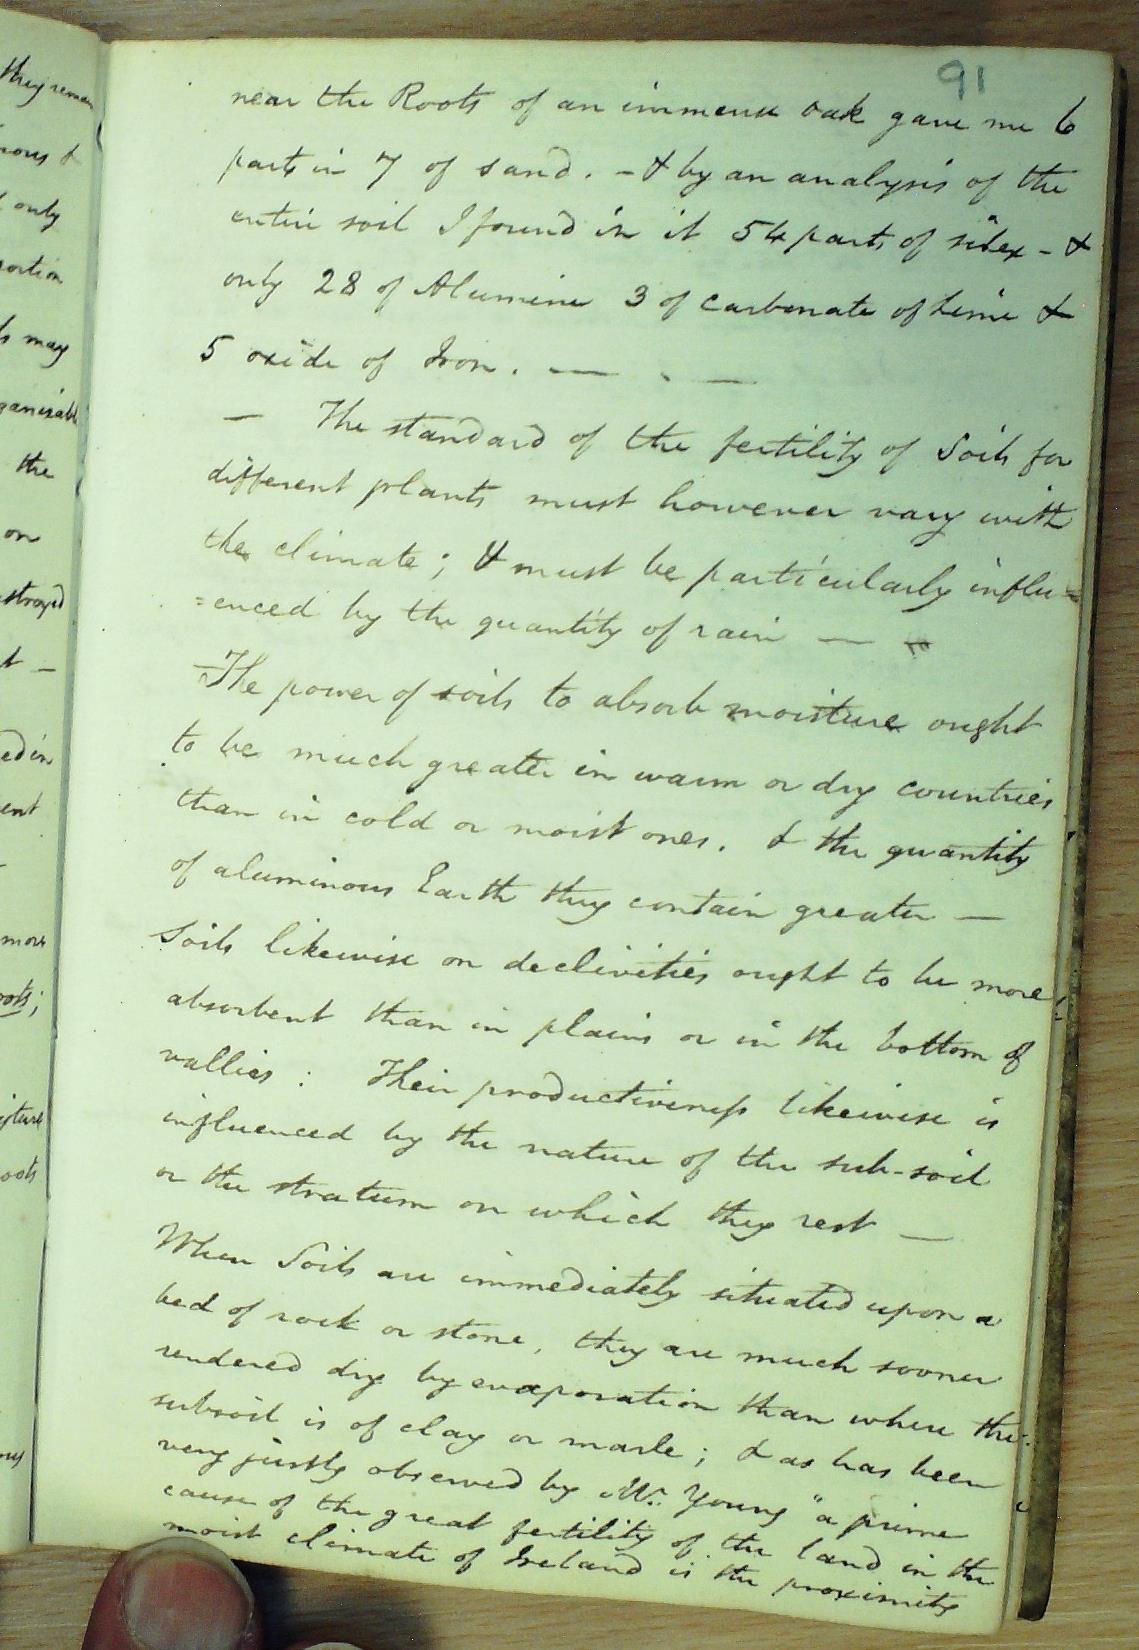 91
near the Roots of an immense oak gave me 6
parts in 7 of sand. - & by an analysis of the
entire soil I found in it 54 parts of silex - &
only 28 of Alumine 3 of carbonate of Lime &
5 oxide of Iron. — . —
— The standard of the fertility of Soils for
different plants must however vary with
the climate; & must be particularly influ=
=enced by the quantity of rain —
The power of soils to absorb moisture ought
to be much greater in warm or dry countries
than in cold or moist ones. & the quantity
of aluminous Earth they contain greater —
Soils likewise on declivities ought to be more
absorbent than in plains or in the bottom of
vallies : Their productiveness likewise is
influenced by the nature of the sub-soil
or the stratum on which they rest —
When Soils are immediately situated upon a
bed of rock or stone, they are much sooner
rendered dry by evaporation than where the
subsoil is of clay or marle; & as has been
very justly observed by Mr. Young "a prime
cause of the great fertility of the land in the
moist climate of Ireland is the proximity
they remain
only
may
the
on
t —
ed in
ent
more